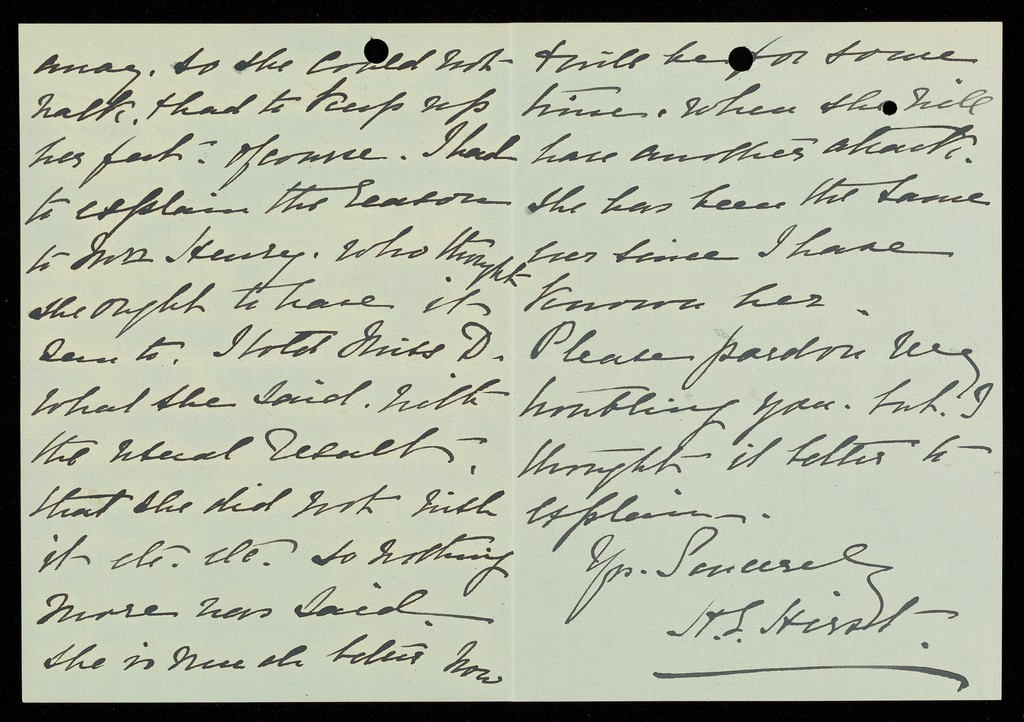 away. so she could not
walk, & had to keep up
her feet. of course. I had
to explain the reason
to Mrs Henry. who thought
she ought to have it
seen to. I told Miss D.
what she said. with
the usual result,
that she did not wish
it etc. etc. so nothing
more was said.
She is much better now
& will be for some
time. when she will
have another attack.
She has been the same
ever since I have
known her.
Please pardon my
troubling you. but. I
thought it better to
explain.
Yrs. Sincerely
H S. Hirst.